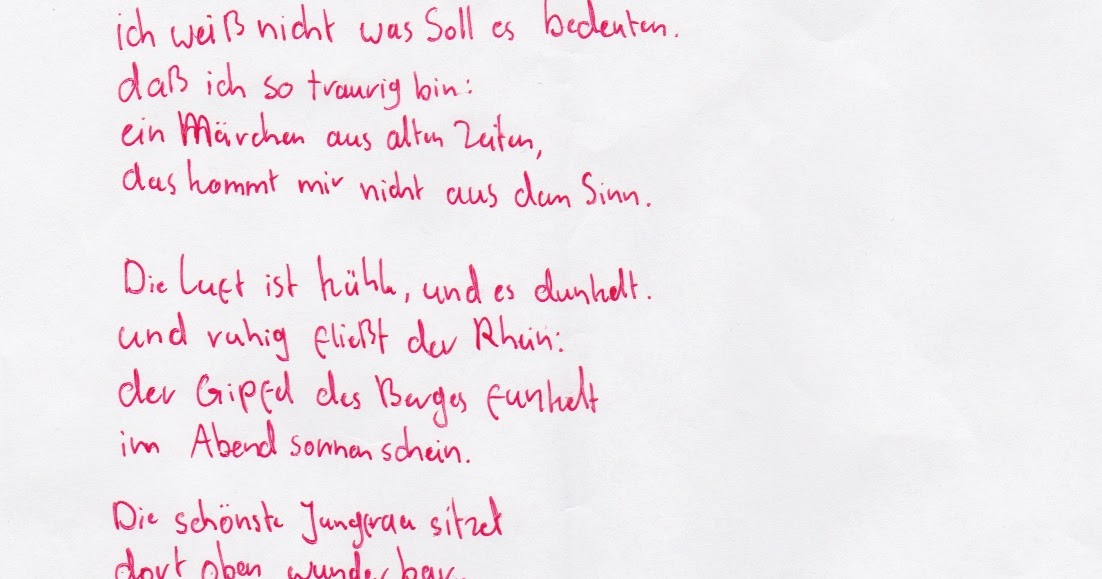 ich weiß nicht was Soll es bedeuten.
daß ich so traurig bin:
ein Märchen aus alten Zeiten,
das kommt mir nicht aus dem Sinn.
Die Luft ist kühle, und es dunkelt.
und ruhig fließt der Rhein:
der Gipfel des Berges funkelt
im Abend sonnen schein.
Die schönste Jungfrau sitzet
dort oben wunderbar.